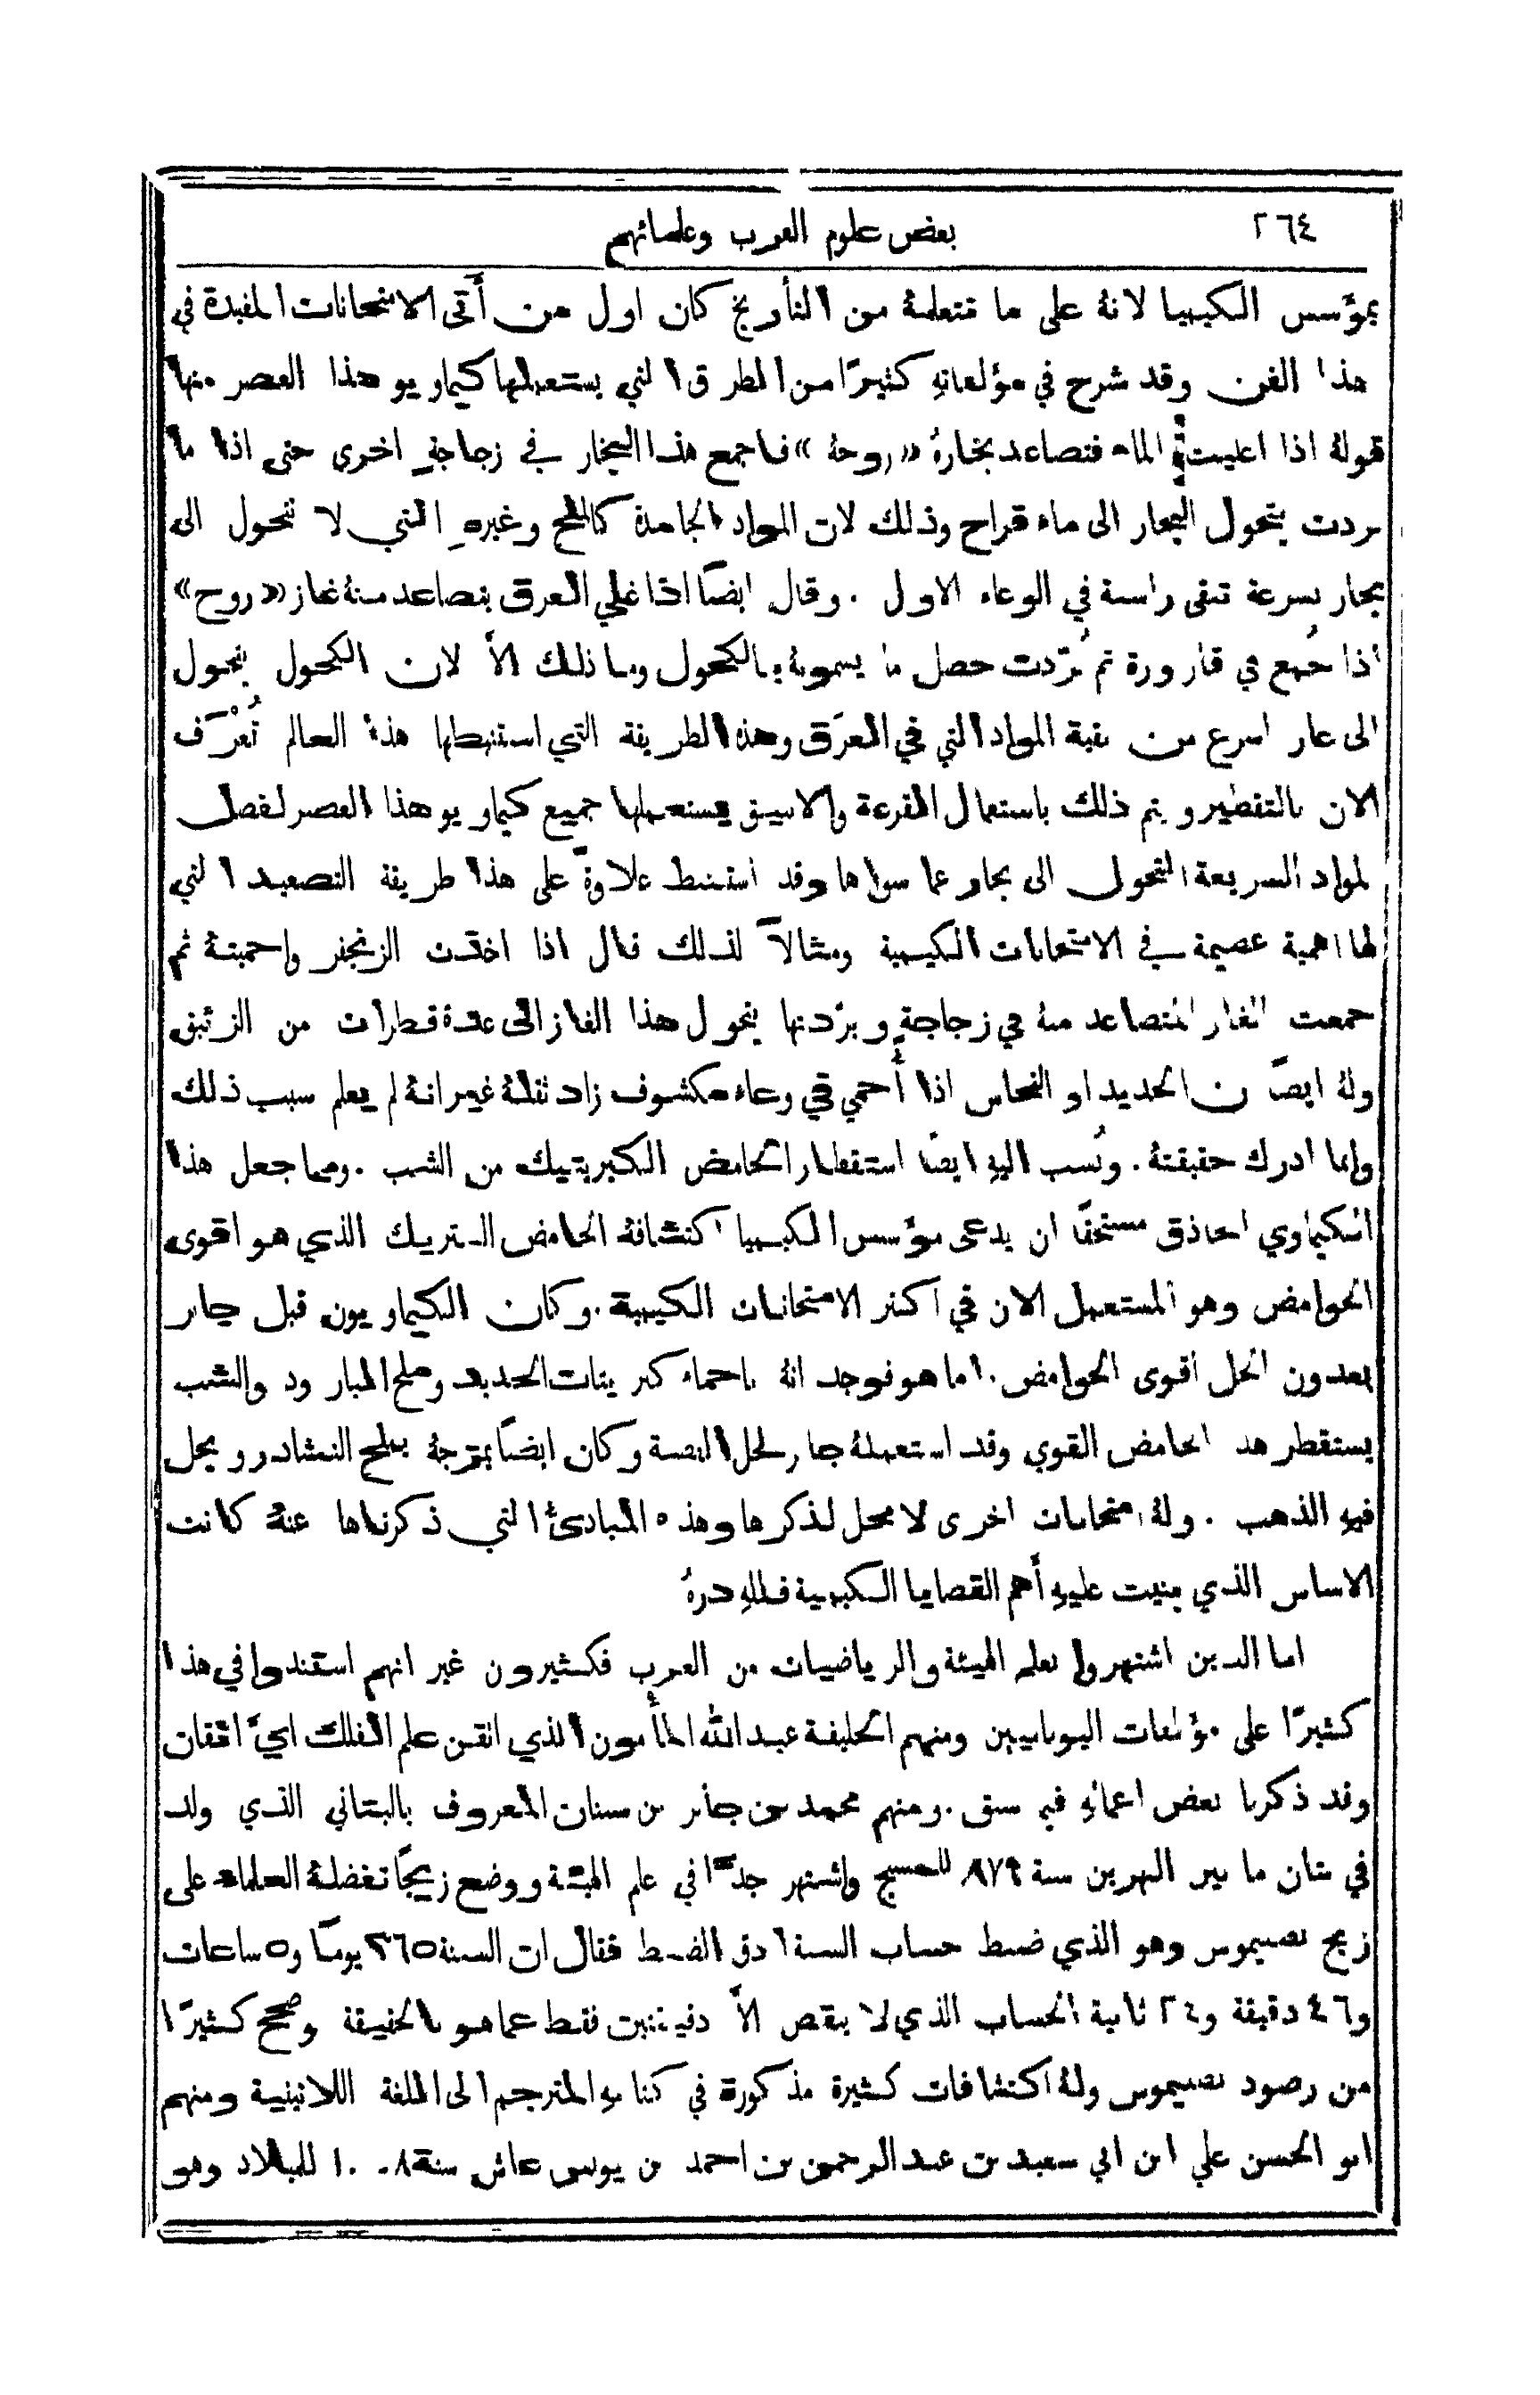 ٢٦٤ بعض علوم العرب وعلمائهم
بمؤسس الكيميا لانهُ على ما نتعلمهُ من التأريخ كان اول من أتى الامتحانات المفيدة في
هذا الفن وقد شرح في مؤلفاتهِ كثيرًا من الطرق التي يستعملها كيماويو هذا العصر منها
قولهُ اذا اغليت الماء فتصاعد بخارهُ «روحهُ» فاجمع هذا البخار في زجاجةٍ اخرى حتى اذا ما
بردت يتحول البخار الى ماء قراح وذلك لان المواد الجامدة كالملح وغيرهِ التي لا تتحول الى
بخار بسرعة تبقى راسبة في الوعاء الاول . وقال ايضًا اذا غلي العرق يتصاعد منهُ غاز «روح»
اذا جُمع في قارورة ثم بُرّدت حصل ما يسمونهُ بالكحول وما ذلك الاَّ لان الكحول يتحول
الى بخار اسرع من بقية المواد التي في العرَق وهذه الطريقة التي استنبطها هذا العالم تُعْرَف
الان بالتقطير ويتم ذلك باستعمال القرعة والانبيق يستعملها جميع كيماويو هذا العصر لفصل
المواد السريعة التحول الى بخار عما سواها وقد استنبط علاوةً على هذا طريقة التصعيد التي
لها اهمية عظيمة في الامتحانات الكيمية ومثالاً لذلك قال اذا اخذت الزنجفر واحميتهُ ثم
جمعت الغاز المتصاعد منهُ في زجاجةٍ وبرّدتها يتحول هذا الغاز الى عدة قطرات من الزئبق
ولهُ ايضًا ان الحديد او النحاس اذا أُحمي في وعاء مكشوف زاد ثقلهُ غير انهُ لم يعلم سبب ذلك
وانما ادرك حقيقتهُ . ونُسب اليهِ ايضًا استقطار الحامض الكبريتيك من الشب . ومما جعل هذا
الكيماوي الحاذق مستحقًا ان يدعى مؤسس الكيميا اكتشافهُ الحامض النتريك الذي هو اقوى
الحوامض وهو المستعمل الان في اكثر الامتحانات الكيمية . وكان الكيماويون قبل جابر
يعدون الخل اقوى الحوامض . اما هو فوجد انهُ باحماء كبريتات الحديد وملح البارود والشب
يستقطر هذا الحامض القوي وقد استعملهُ جابر لحل الفضة وكان ايضًا يمزجهُ بملح النشادر ويحل
فيهِ الذهب . ولهُ امتحانات اخرى لا محل لذكرها وهذه المبادئ التي ذكرناها عنهُ كانت
الاساس الذي بنيت عليهِ أَهم القضايا الكيمية فللهِ درهُ
اما الذين اشتهروا بعلم الهيئة والرياضيات من العرب فكثيرون غير انهم استندوا في هذا
كثيرًا على مؤلفات اليونانيين ومنهم الخليفة عبد الله المأمون الذي اتقن علم الفلك ايَّ اتقان
وقد ذكرنا بعض اعمالهِ فيما سبق . ومنهم محمد بن جابر بن سنان المعروف بالبتاني الذي ولد
في بتان ما بين النهرين سنة ٨٧٩ للمسيح واشتهر جدًّا في علم الهيئة ووضع زيجًا تفضلهُ العلماء على
زيج بطليموس وهو الذي ضبط حساب السنة ادق الضبط فقال ان السنة ٣٦٥ يومًا و٥ ساعات
و٤٦ دقيقة و٢٤ ثانية الحساب الذي لا ينقص الاَّ دقيقتين فقط عما هو بالحقيقة وصحح كثيرًا
من رصود بطليموس ولهُ اكتشافات كثيرة مذكورة في كتابهِ المترجم الى اللغة اللاتينية ومنهم
ابو الحسن علي ابن ابي سعيد بن عبد الرحمن بن احمد بن يونس عاش سنة ١٠٠٨ للميلاد وهو